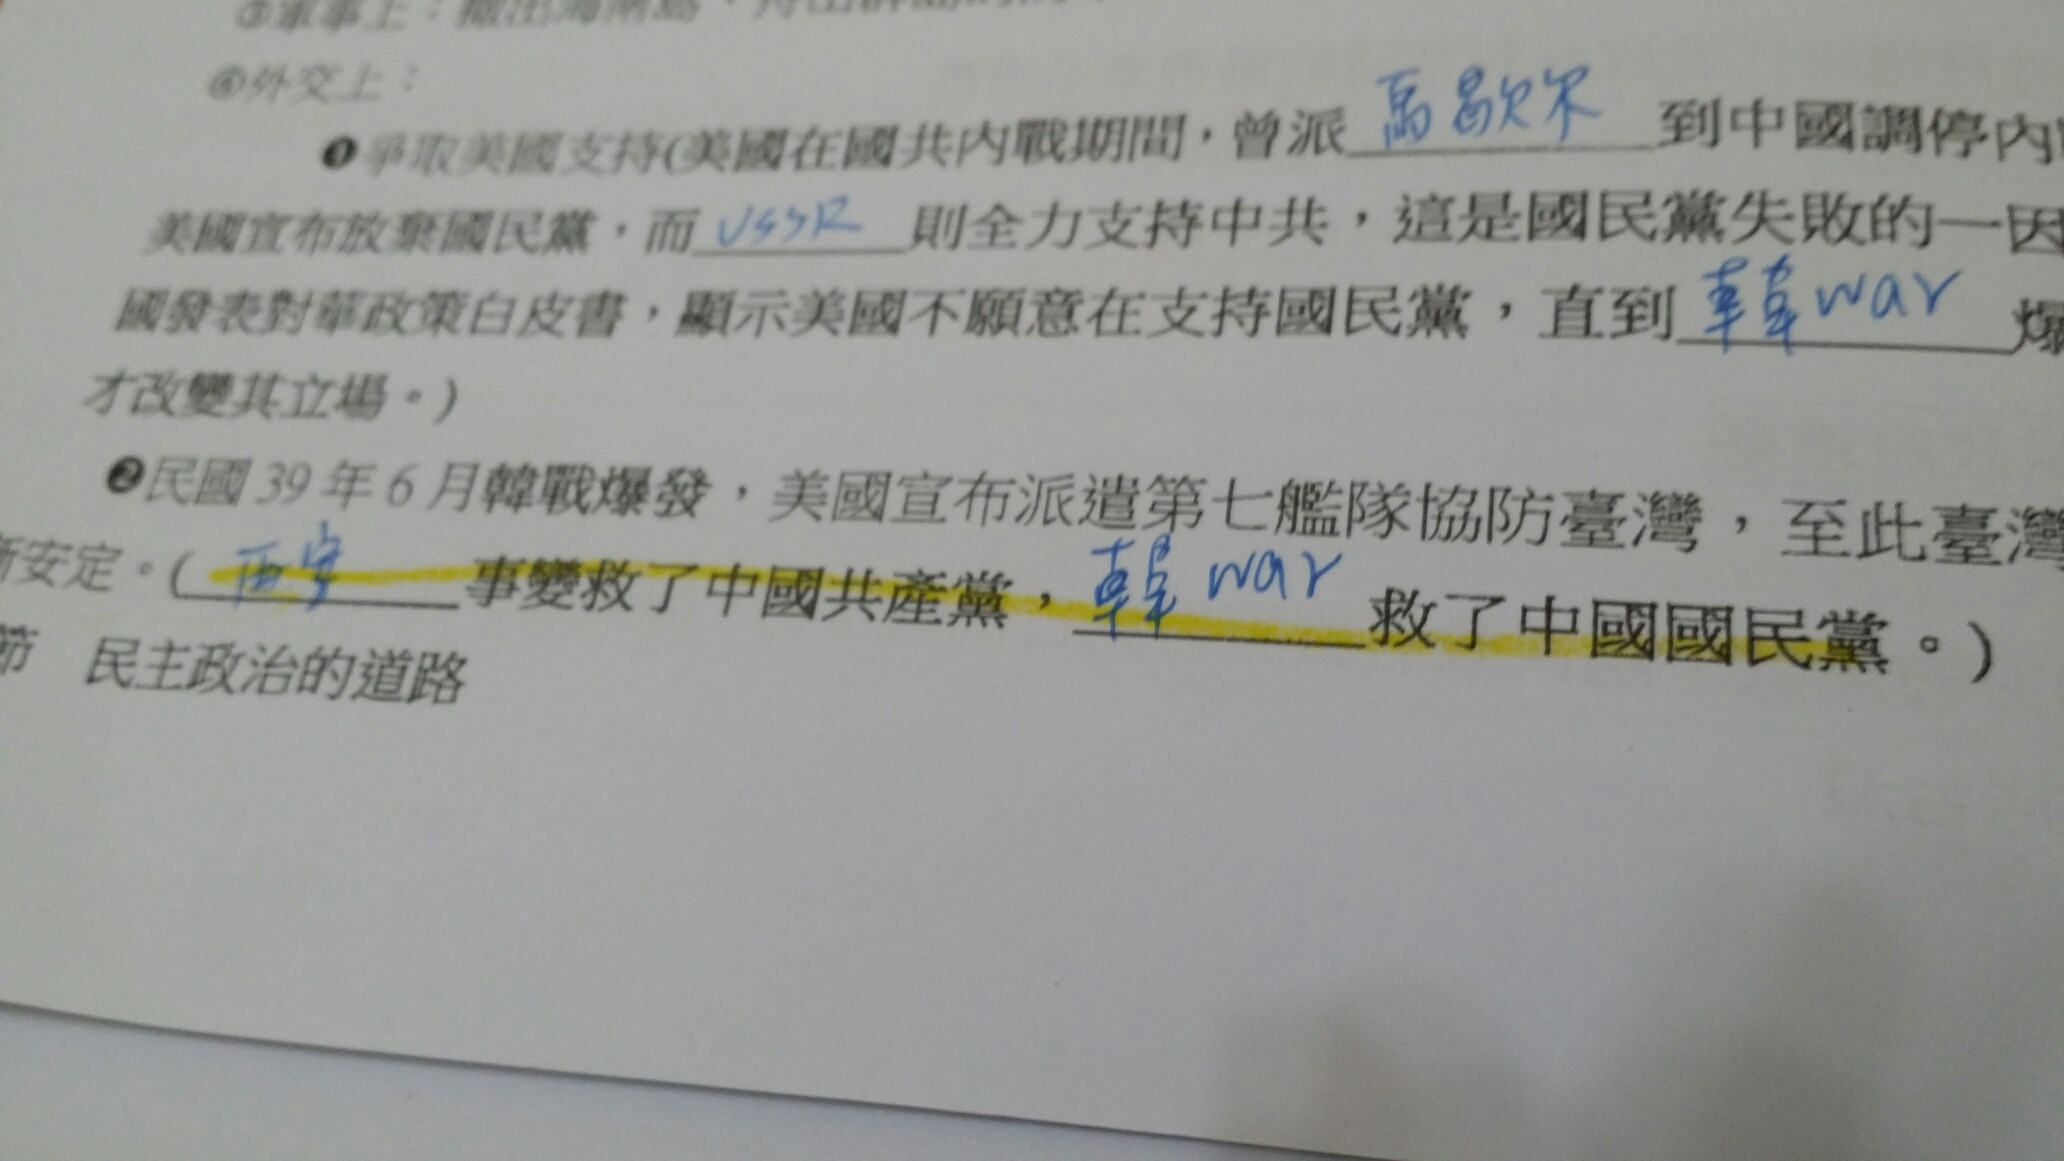 ③軍事上：撤出海南島、舟山群島
④外交上：
❶爭取美國支持(美國在國共內戰期間，曾派馬歇尔到中國調停內
美國宣布放棄國民黨，而USSR則全力支持中共，這是國民黨失敗的一因
國發表對華政策白皮書，顯示美國不願意在支持國民黨，直到韓war爆
才改變其立場。)
❷民國39年6月韓戰爆發，美國宣布派遣第七艦隊協防臺灣，至此臺灣
漸安定。(西安事變救了中國共產黨，韓war救了中國國民黨。)
節 民主政治的道路